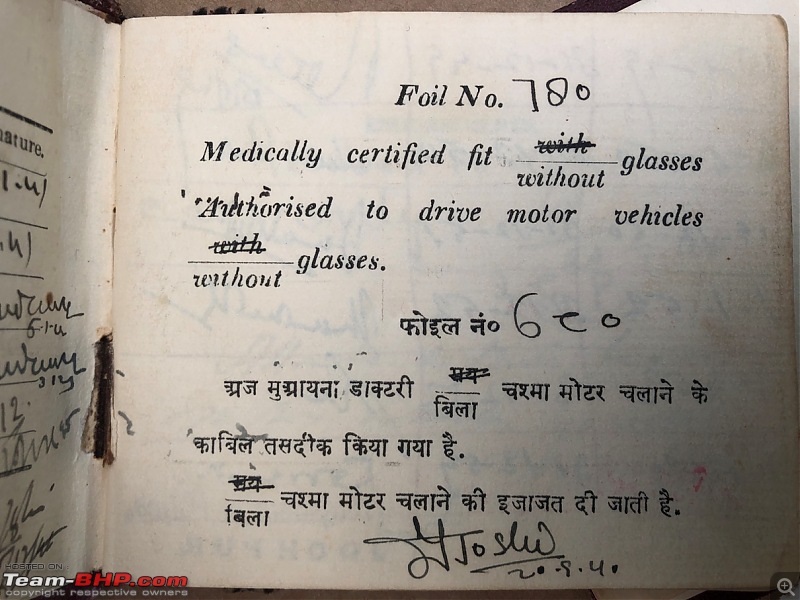 nature.
Foil No. 780
Medically certified fit with/without glasses
Authorised to drive motor vehicles
with/without glasses.
फोइल नं० ७८०
अज मुआयना डाक्टरी मय/बिला चश्मा मोटर चलाने के
काबिल तसदीक किया गया है.
मय/बिला चश्मा मोटर चलाने की इजाजत दी जाती है.
Joshi
HOSTED ON
Team-BHP.com
copyright respective owners